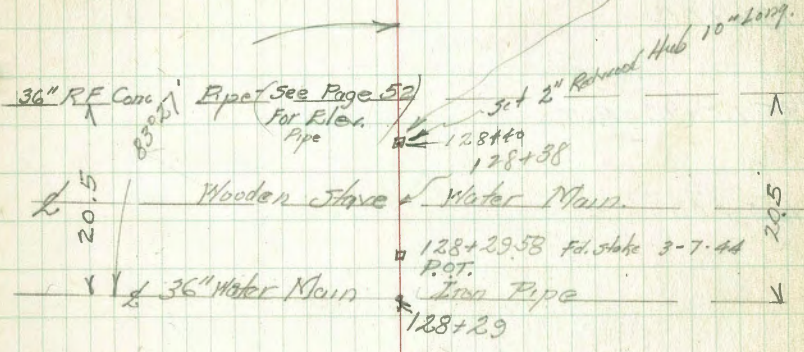 set 2" Redwood Hub 10" Long.
36" R.F. Conc Pipe (See Page 52)
For Elev.
Pipe
83°27'
128+40
128+38
20.5
℄ Wooden Stave Water Main.
20.5
128+29.58 Fd. stake 3-7-44
P.O.T.
℄ 36" Water Main Iron Pipe
128+29